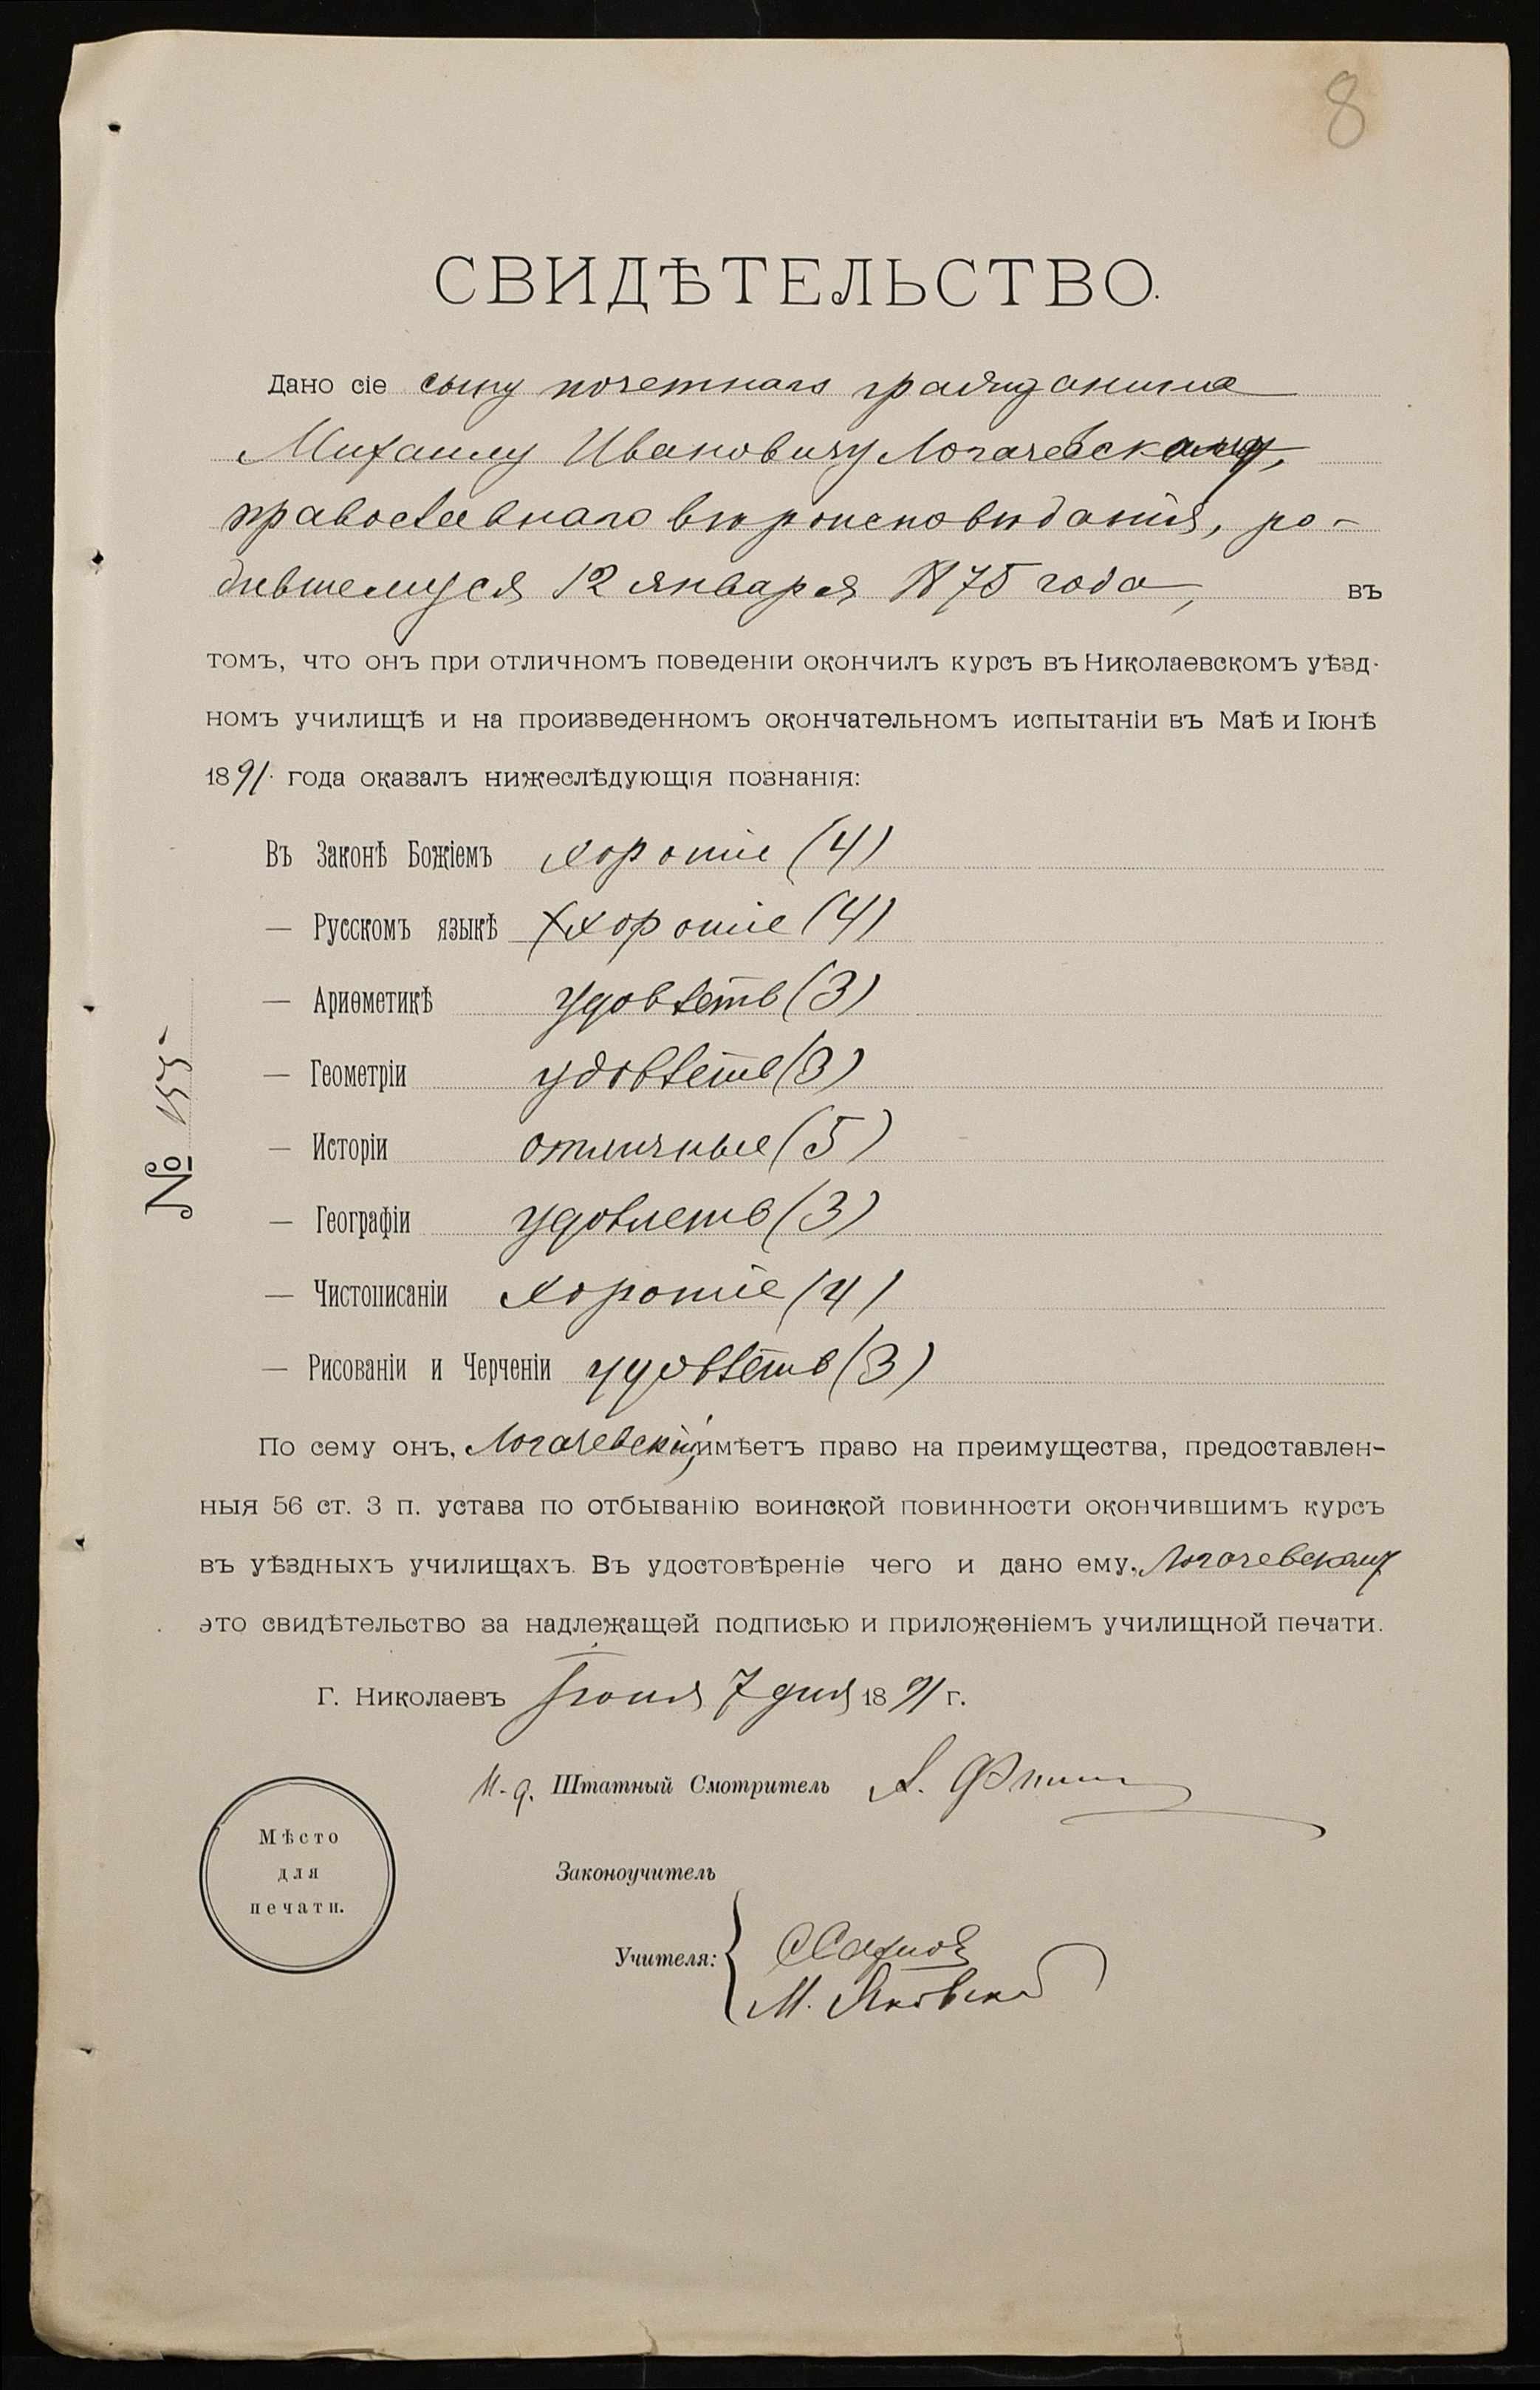 8
СВИДѢТЕЛЬСТВО.
Дано сіе сыну почетнаго гражданина
Михаилу Ивановичу Логачевскому,
православнаго вѣроисповѣданія, ро-
дившемуся 12 января 1875 года, въ
томъ, что онъ при отличномъ поведеніи окончилъ курсъ въ Николаевскомъ уѣзд-
номъ училищѣ и на произведенномъ окончательномъ испытаніи въ Маѣ и Іюнѣ
1891. года оказалъ нижеслѣдующія познанія:
Въ Законѣ Божіемъ хорошіе (4)
— Русскомъ языкѣ хорошіе (4)
— Ариѳметикѣ удовлетв (3)
— Геометріи удовлетв (3)
— Исторіи отличные (5)
— Географіи удовлетв (3)
— Чистописаніи хорошіе (4)
— Рисованіи и Черченіи удовлетв (3)
№ 155
По сему онъ, Логачевскій, имѣетъ право на преимущества, предоставлен-
ныя 56 ст. 3 п. устава по отбыванію воинской повинности окончившимъ курсъ
въ уѣздныхъ училищахъ. Въ удостовѣреніе чего и дано ему, Логачевскому
это свидѣтельство за надлежащей подписью и приложеніемъ училищной печати.
Г. Николаевъ Іюня 7 дня 1891 г.
И. д. Штатный Смотритель А.
Мѣсто
для
печати.
Законоучитель
Учителя:
М.